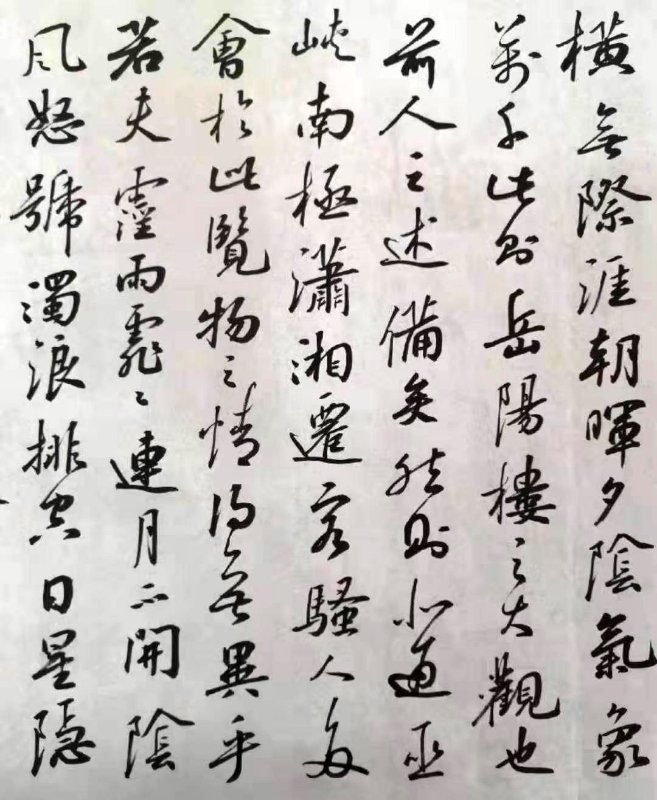 橫無際涯朝暉夕陰氣象
萬千此則岳陽樓之大觀也
前人之述備矣然則北通巫
峽南極瀟湘遷客騷人多
會於此覽物之情得無異乎
若夫霪雨霏々連月不開陰
風怒號濁浪排空日星隱